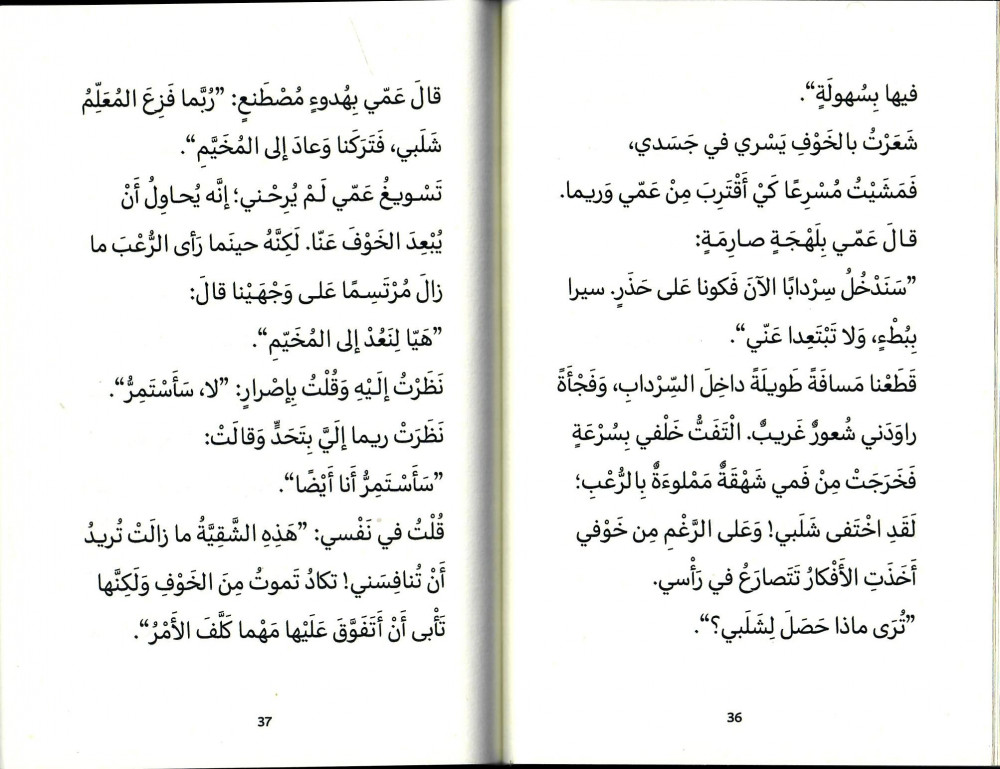 فيها بِسُهولَةٍ“.
شَعَرْتُ بالخَوْفِ يَسْري في جَسَدي،
فَمَشَيْتُ مُسْرِعًا كَيْ أَقْتَرِبَ مِنْ عَمّي وَريما.
قالَ عَمّي بِلَهْجَةٍ صارِمَةٍ:
”سَنَدْخُلُ سِرْدابًا الآنَ فَكونا عَلى حَذَرٍ. سيرا
بِبُطْءٍ، وَلا تَبْتَعِدا عَنّي“.
قَطَعْنا مَسافَةً طَويلَةً داخِلَ السِّرْدابِ، وَفَجْأَةً
راوَدَني شُعورٌ غَريبٌ. الْتَفَتُّ خَلْفي بِسُرْعَةٍ
فَخَرَجَتْ مِنْ فَمي شَهْقَةٌ مَمْلوءَةٌ بِالرُّعْبِ؛
لَقَدِ اخْتَفى شَلَبي! وَعَلى الرَّغْمِ مِن خَوْفي
أَخَذَتِ الأَفْكارُ تَتَصارَعُ في رَأْسي.
”تُرَى ماذا حَصَلَ لِشَلَبي؟“.
36
قالَ عَمّي بِهُدوءٍ مُصْطَنعٍ: ”رُبَّما فَزِعَ المُعَلِّمُ
شَلَبي، فَتَرَكَنا وَعادَ إلى المُخَيَّمِ“.
تَسْويغُ عَمّي لَمْ يُرِحْني؛ إنَّه يُحاوِلُ أَنْ
يُبْعِدَ الخَوْفَ عَنّا. لَكِنَّهُ حينَما رَأى الرُّعْبَ ما
زالَ مُرْتَسِمًا عَلى وَجْهَيْنا قالَ:
”هَيّا لِنَعُدْ إلى المُخَيّمِ“.
نَظَرْتُ إلَيْهِ وَقُلْتُ بِإصْرارٍ: ”لا، سَأَسْتَمِرُّ“.
نَظَرَتْ ريما إلَيَّ بِتَحَدٍّ وَقالَتْ:
”سَأَسْتَمِرُّ أَنا أَيْضًا“.
قُلْتُ في نَفْسي: ”هَذِهِ الشَّقِيَّةُ ما زالَتْ تُريدُ
أَنْ تُنافِسَني! تكادُ تَموتُ مِنَ الخَوْفِ وَلَكِنَّها
تَأْبى أَنْ أَتَفَوَّقَ عَلَيْها مَهْما كَلَّفَ الأَمْرُ“.
37